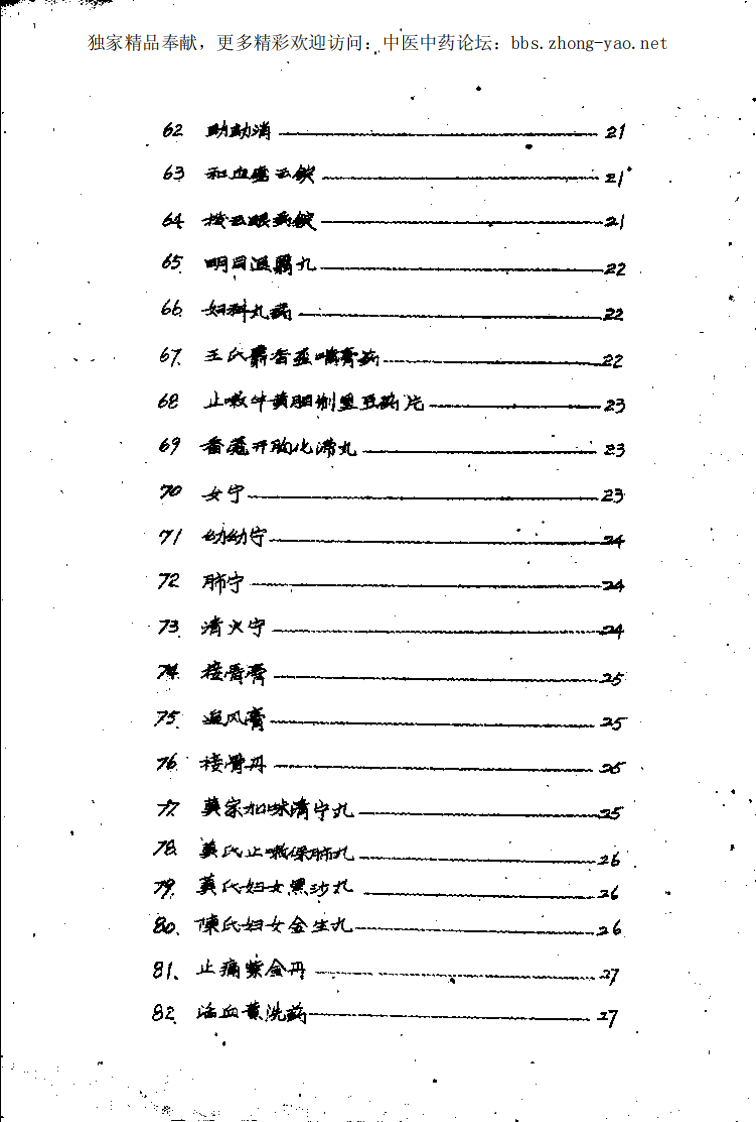 独家精品奉献，更多精彩欢迎访问：中医中药论坛：bbs.zhong-yao.net
62 助动消 21
63 和血 锭 21
64 拨云眼药锭 21
65. 明目 丸 22
66. 妇科丸药 22
67. 王氏麝香 喘膏药 22
68 止嗽牛黄胆制 豆药片 23
69 香蔻开胸化滞丸 23
70 女宁 23
71 幼幼宁 24
72 肺宁 24
73. 清火宁 24
74. 接骨膏 25
75. 追风膏 25
76. 接骨丹 25
77. 龚家加味清宁丸 25
78. 龚氏止嗽保肺丸 26
79. 龚氏妇女黑沙丸 26
80. 陳氏妇女金生丸 26
81、止痛紫金丹 27
82. 活血 洗药 27